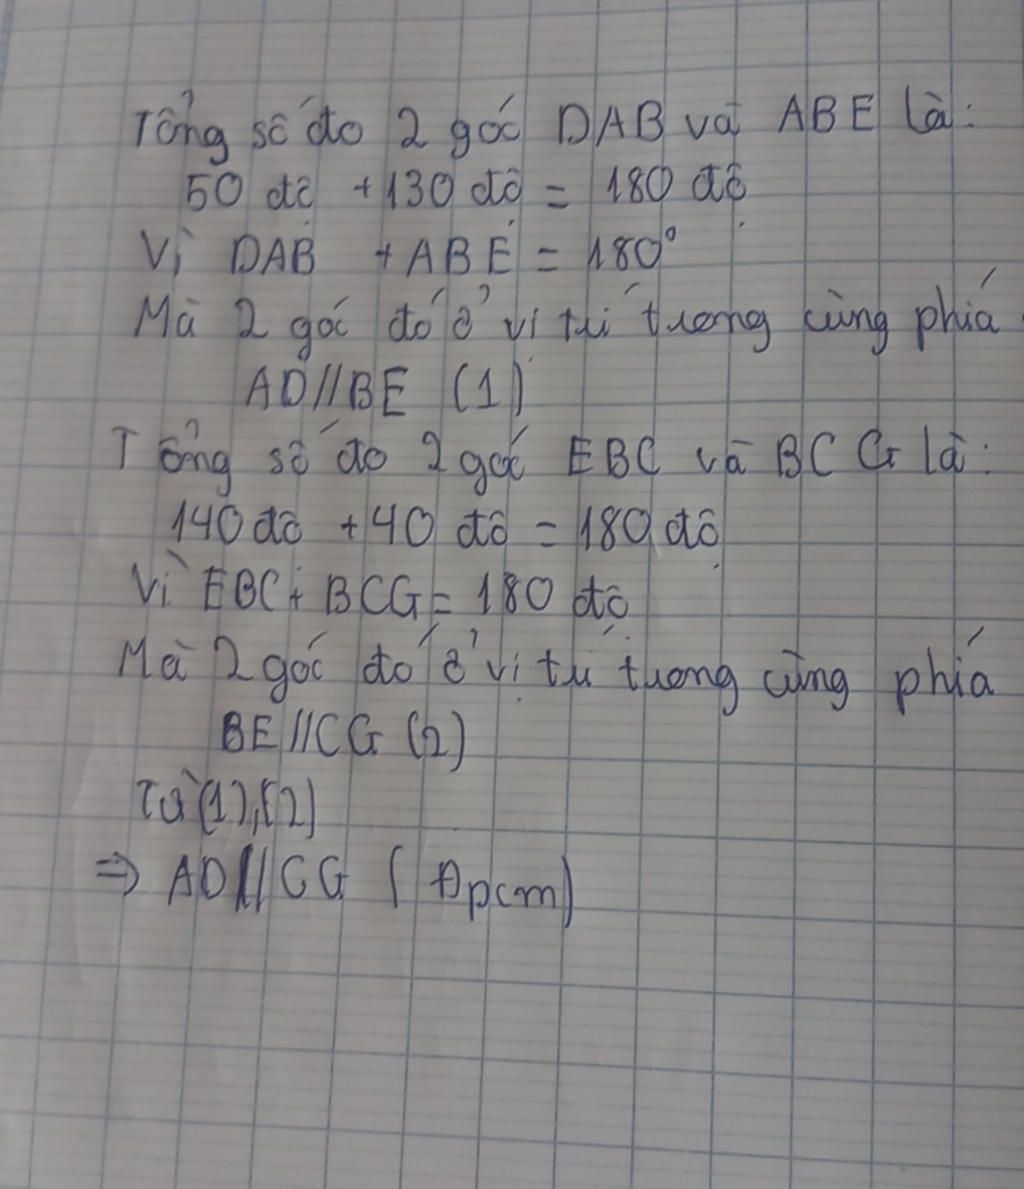 Tổng số đo 2 góc DAB và ABE là:
50 độ + 130 độ = 180 độ
Vì DAB + ABE = 180°
Mà 2 góc đó ở vị trí tương cùng phía
AD//BE (1)
Tổng số đo 2 góc EBC và BCG là:
140 độ + 40 độ = 180 độ
Vì EBC + BCG = 180 độ
Mà 2 góc đó ở vị trí tương cùng phía
BE//CG (2)
Từ (1),(2)
⇒ AD//CG (Đpcm)